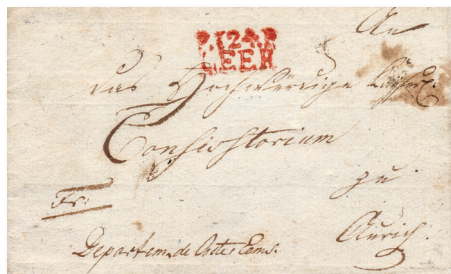 An
P.124.P
LEER
das Hochwürdige
Consistorium
zu
Fr:
Aurich.
Departem. de Ooster Eems.